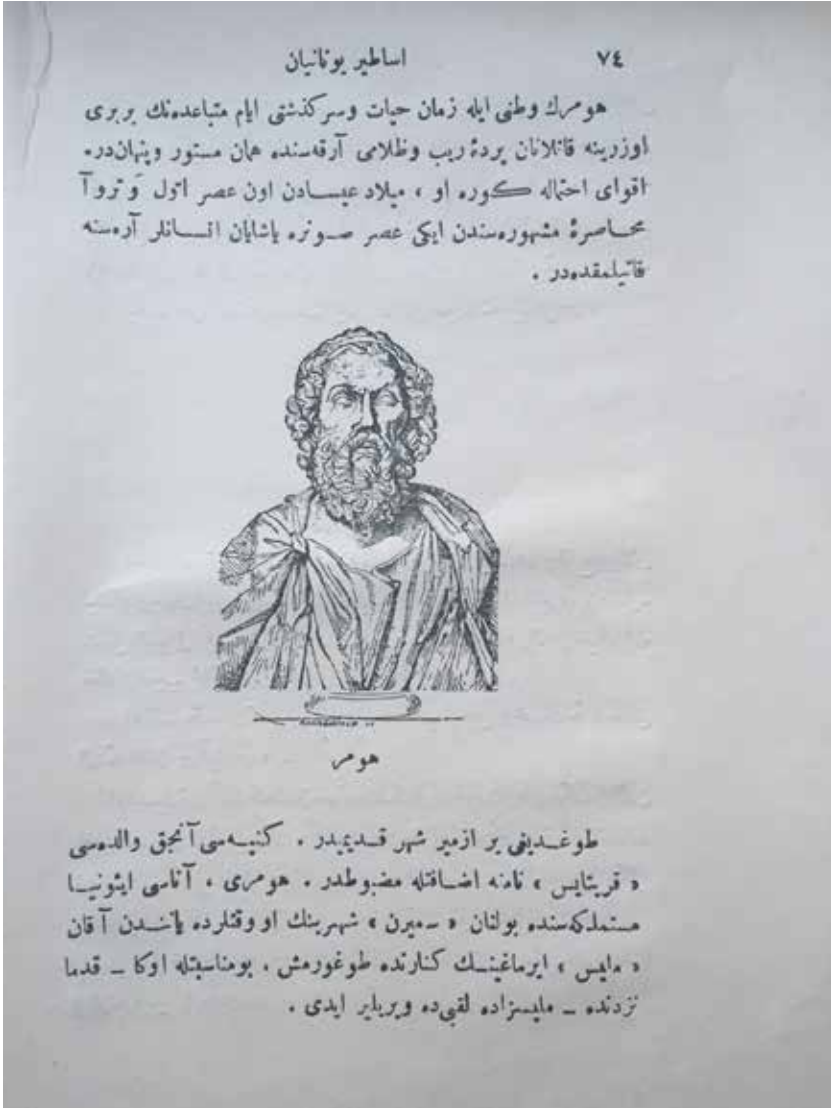 ٧٤
اساطير يونانيان
هومرك وطنى ايله زمان حيات وسركذشتى ايام متباعده‌نك بربرى
اوزرينه قاتلانان پردۀ ريب وظلامى آرقه‌سنده همان مستور وپنهان‌در.
اقواى احتماله كوره او ، ميلاد عيسادن اون عصر اول و تروآ
محاصرۀ مشهوره‌سندن ايكى عصر صوكره ياشايان انسانلر آره‌سنه
قاتيلمقده‌در .
هومر
طوغديغى ير ازمير شهر قديميدر . كنيه‌سى آنجق والده‌سى
« قريتايس » نامنه اضافتله مضبوطدر . هومرى ، آناسى ايئونيا
مستملكه‌سنده بولنان « سميرن » شهرينك او وقتلرده ياننـدن آقان
« ملیس » ايرماغينك كنارنده طوغورمش . بومناسبتله اوكا ــ قدما
نزدنده ــ مليسزاده لقبى‌ده ويريلير ايدى .